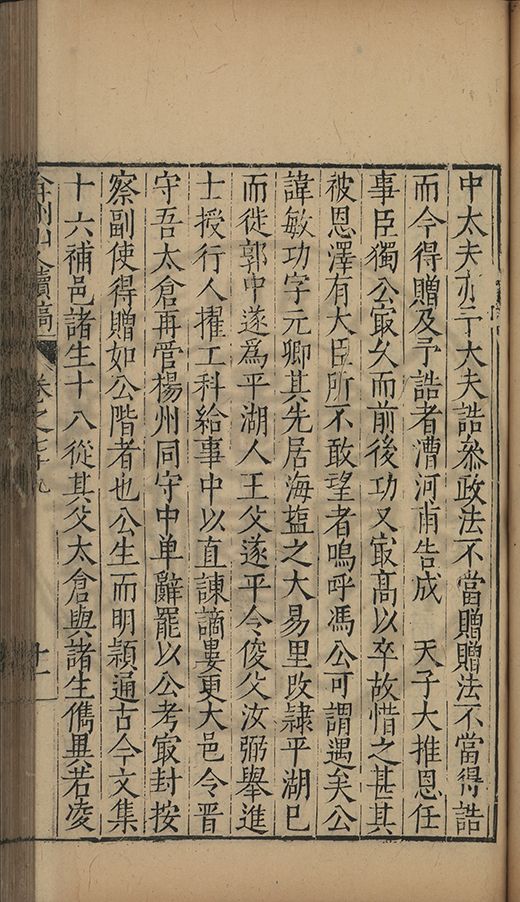 中太夫亦予大夫誥叅政法不當贈贈法不當得誥
而今得贈及予誥者漕河甫告成　天子大推恩任
事臣獨公㝡久而前後功又㝡髙以卒故惜之甚其
被恩澤有大臣所不敢望者嗚呼馮公可謂遇矣公
諱敏功字元卿其先居海塩之大易里改隸平湖已
而徙郭中遂爲平湖人王父遂平令俊父汝弼舉進
士授行人擢工科給事中以直諌謫婁更大邑令晋
守吾太倉再管楊州同守中单辭罷以公考㝡封按
察副使得贈如公階者也公生而明穎通古今文集
十六補邑諸生十八從其父太倉與諸生儁異若凌
弇州山人續稿　卷之七十九　十一